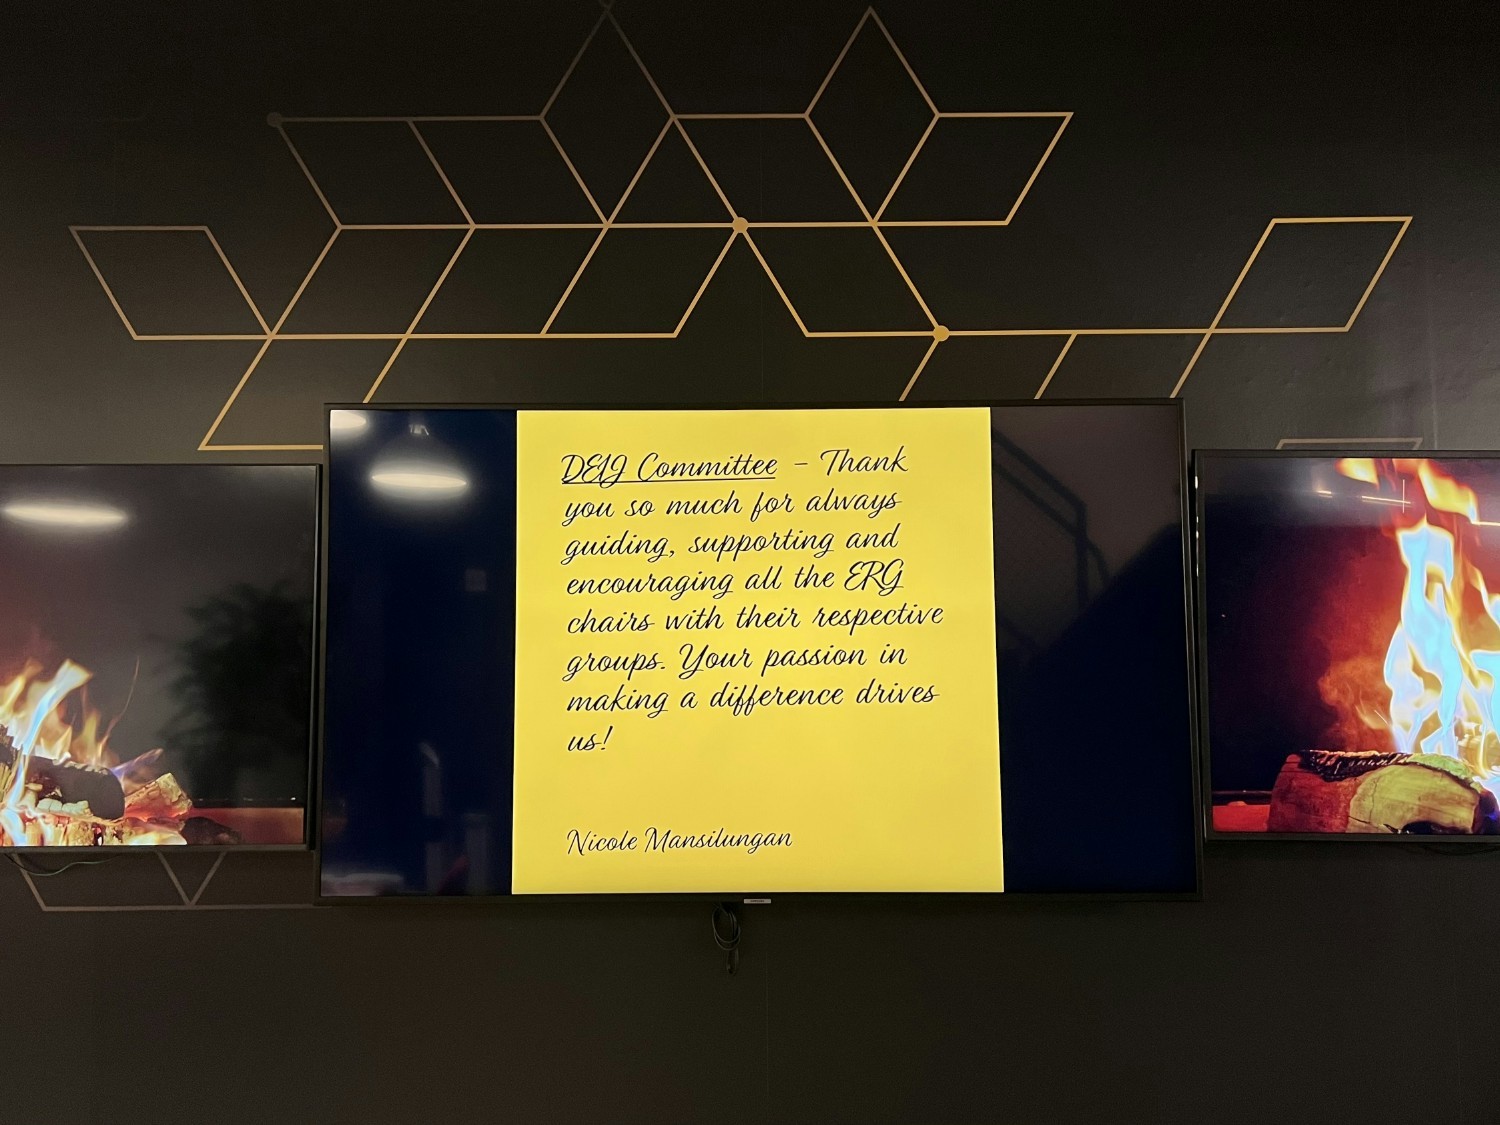 DEIJ Committee - Thank
you so much for always
guiding, supporting and
encouraging all the ERG
chairs with their respective
groups. Your passion in
making a difference drives
us!
Nicole Mansilungan